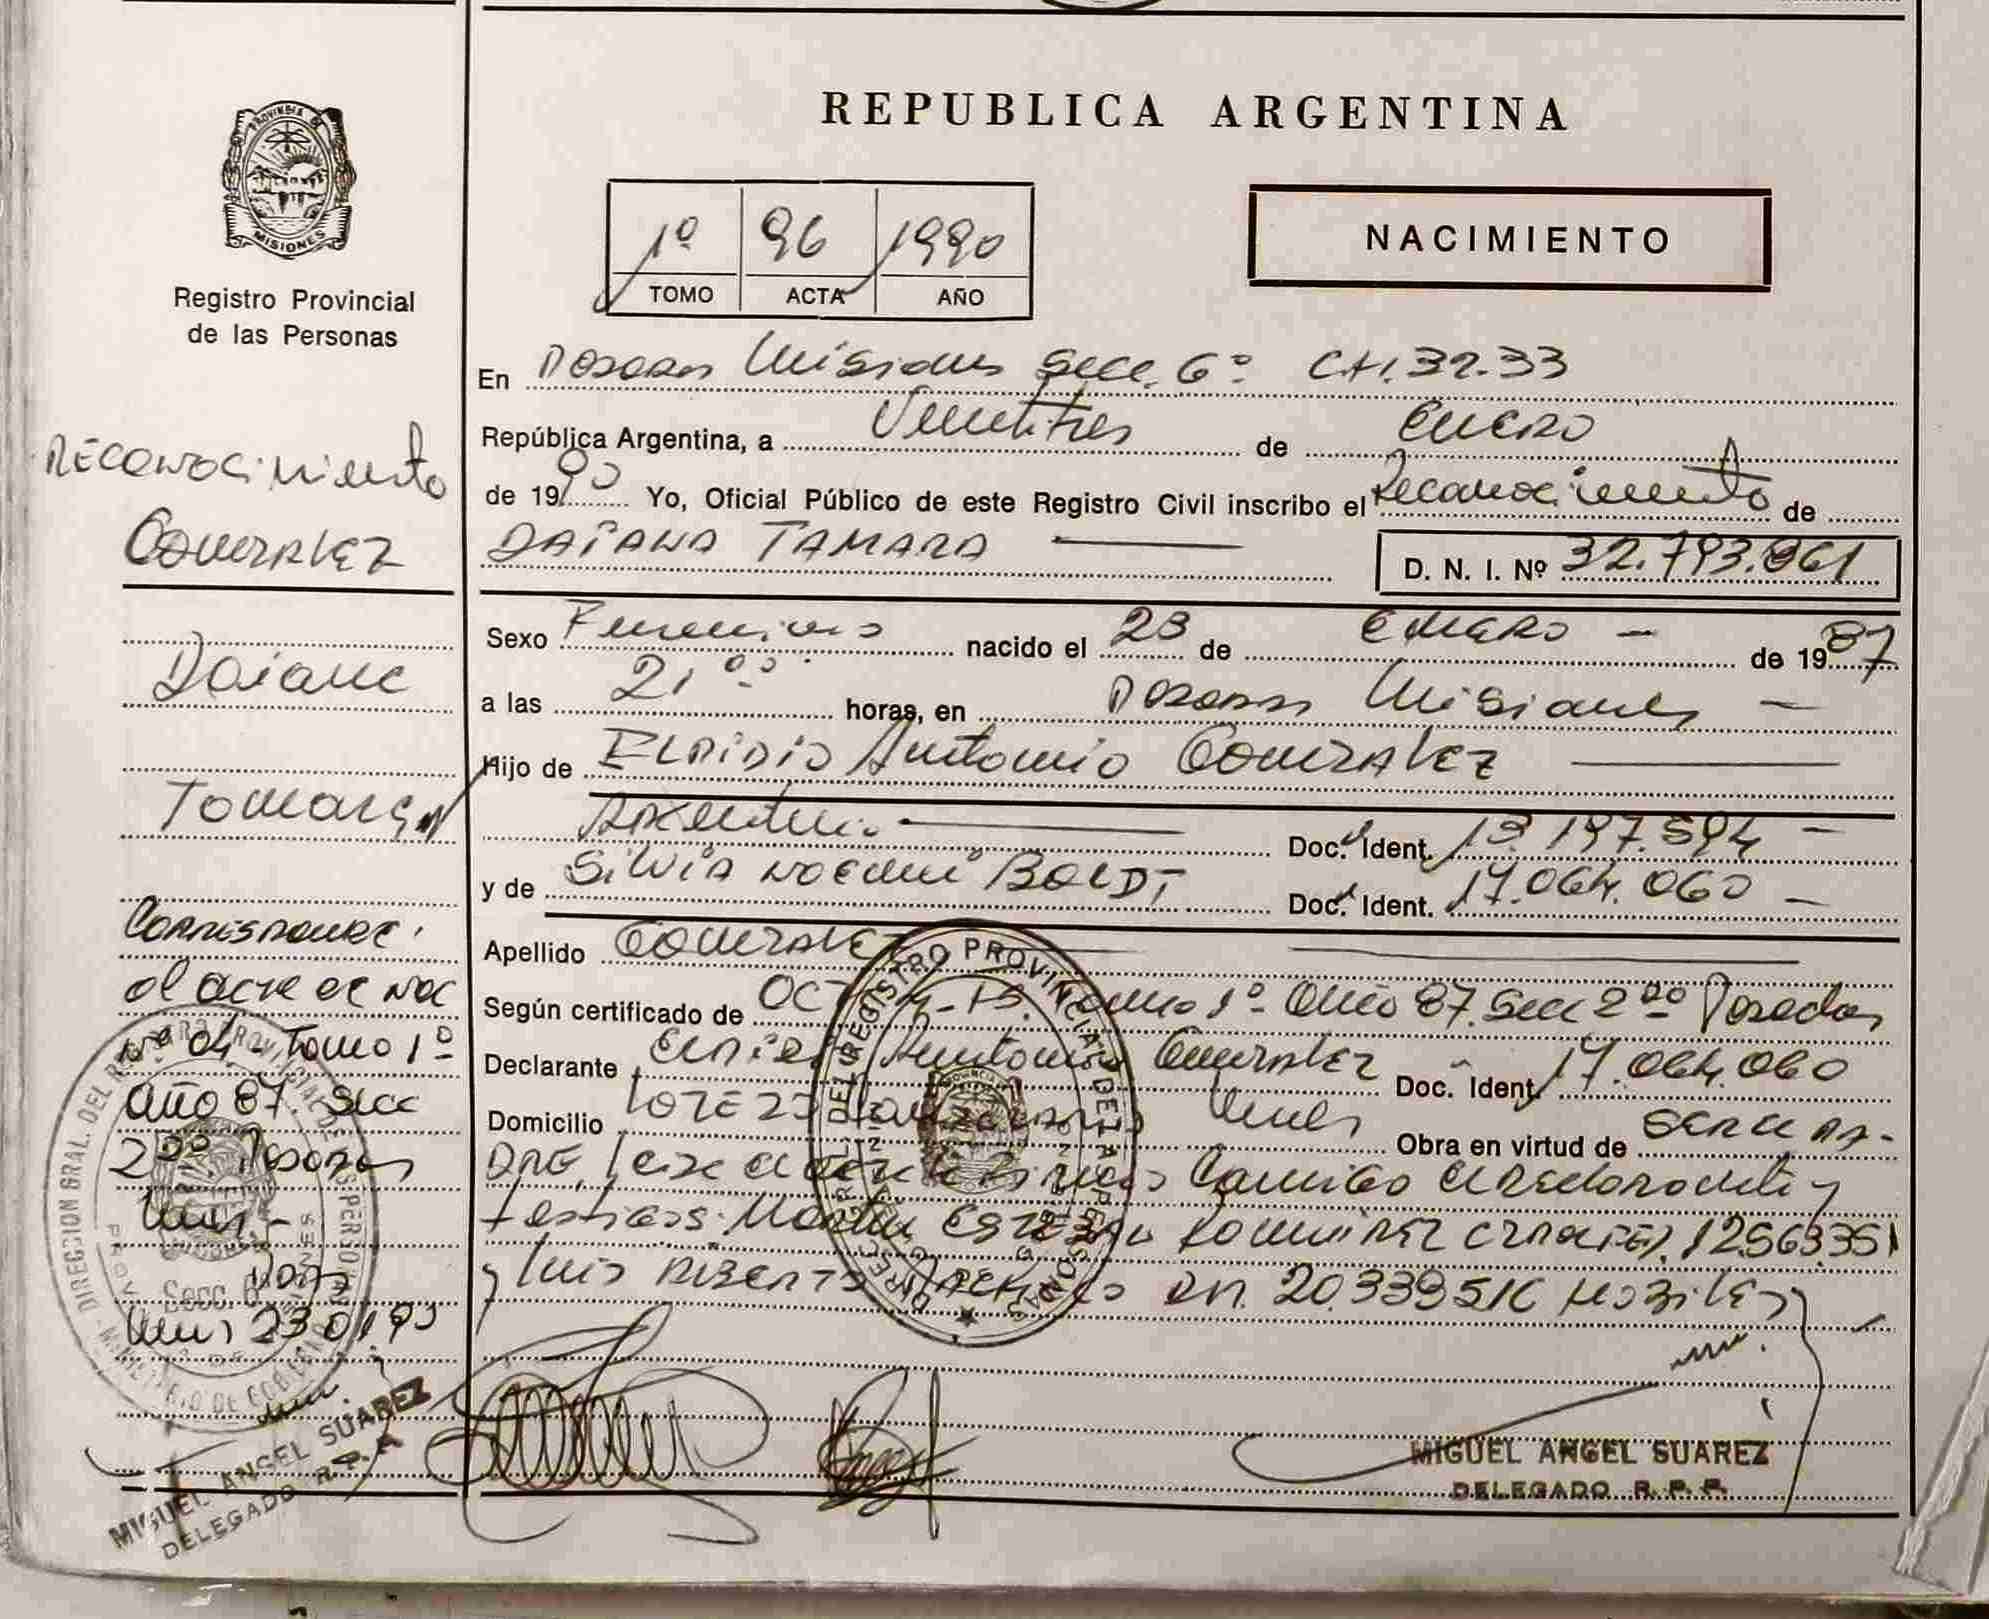 PROVINCIA DE
MISIONES
Registro Provincial
de las Personas
RECONOCIMIENTO
GONZALEZ
Daiana
Tamara
Corresponde
al acta de Nac
Nº 04 - Tomo 1º
Año 87. Secc
2da Posadas
Mnes -
Secc. 6
Pdas
Mnes 23 01 90
MIGUEL ANGEL SUAREZ
DELEGADO R. P. P.
REPUBLICA ARGENTINA
1º 96 1990
TOMO ACTA AÑO
NACIMIENTO
En Posadas Misiones Secc. 6º CH. 32.33
República Argentina, a Veintitres de ENERO
de 1990 Yo, Oficial Público de este Registro Civil inscribo el Reconocimiento de
DAIANA TAMARA D. N. I. Nº 32.793.861
Sexo Femenino nacido el 23 de ENERO - de 1987
a las 21 00 horas, en Posadas Misiones -
Hijo de ELPIDIO Antonio GONZALEZ
Argentino Doc. Ident. 13.197.594 -
y de SILVIA NOEMI BOLDT Doc. Ident. 17.064.060 -
Apellido GONZALEZ
Según certificado de Tomo 1º Año 87. Secc 2da Posadas
Declarante Antonio Gonzalez Doc. Ident. 17.064.060
Domicilio LOTE Mnes Obra en virtud de SER EL PA-
DRE, Camilo
testigos: Martin RAMIREZ 12563351
y Luis ALBERTO DNI. 20.339516
DIRECCION GRAL. DEL REGISTRO PROVINCIAL DE LAS PERSONAS
MIGUEL ANGEL SUAREZ
DELEGADO R. P. P.